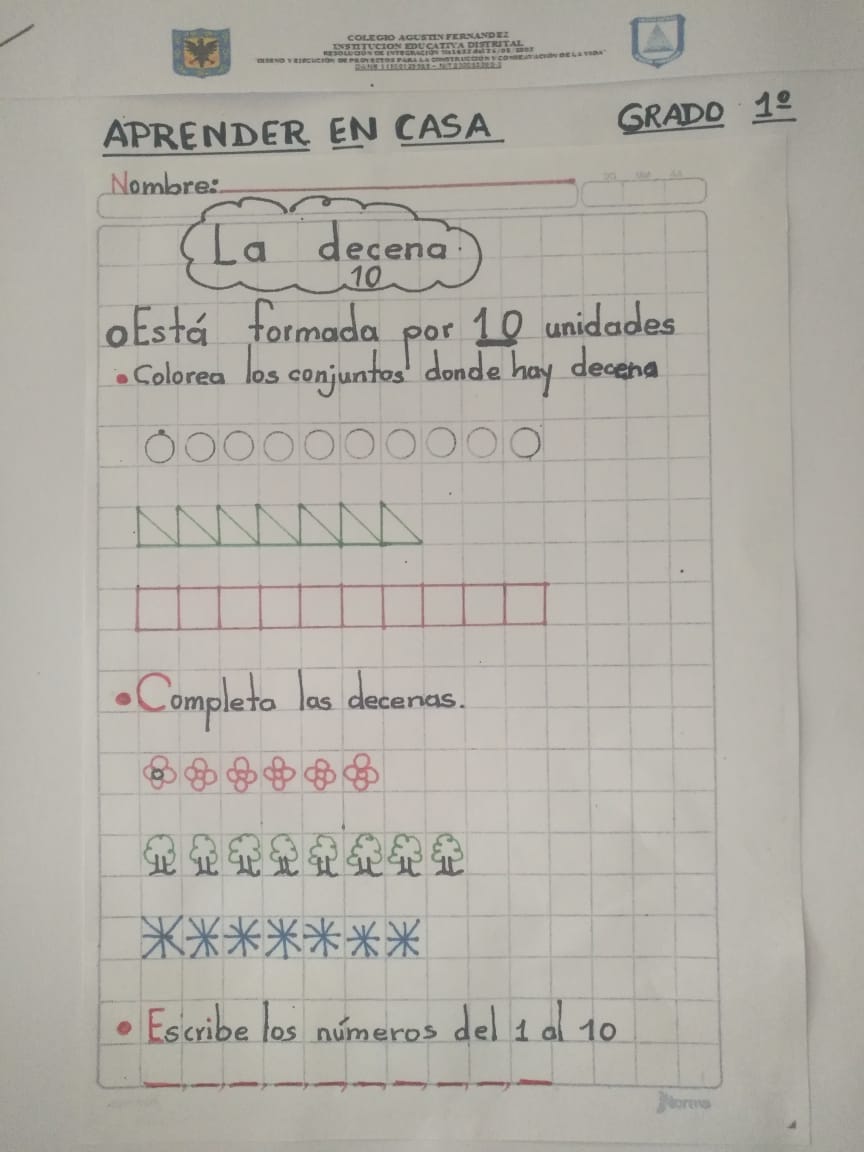 COLEGIO AGUSTIN FERNANDEZ
INSTITUCION EDUCATIVA DISTRITAL
APRENDER EN CASA GRADO 1º
Nombre:
La decena
10
Está formada por 10 unidades
• Colorea los conjuntos donde hay decena
• Completa las decenas.
• Escribe los números del 1 al 10
Norma